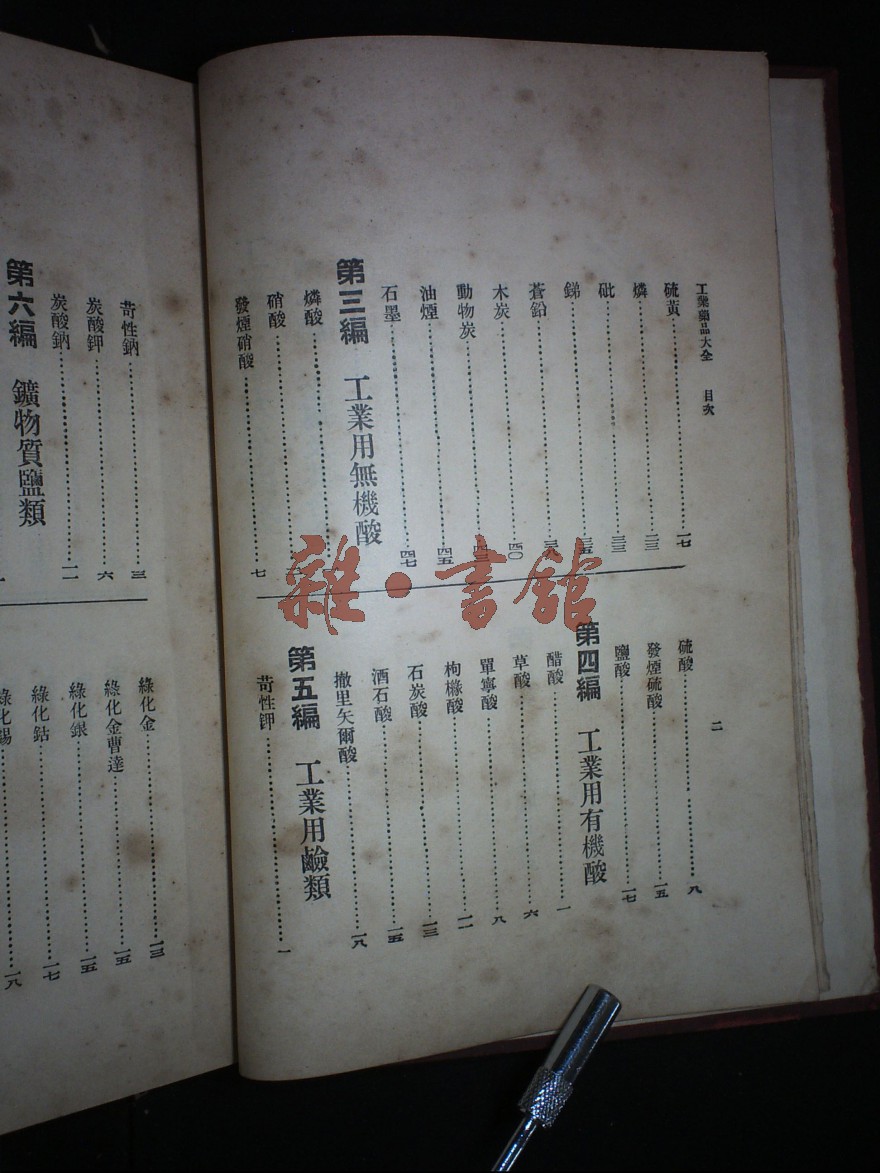 工業藥品大全 目次
二
硫黃 一七
燐 二三
砒 三三
銻 三五
蒼鉛 三八
木炭 四〇
動物炭
油煙 四五
石墨 四七
第三編 工業用無機酸
燐酸
硝酸
發煙硝酸 七
硫酸 八
發煙硫酸 一五
鹽酸 一七
第四編 工業用有機酸
醋酸 一
草酸 六
單寧酸 八
枸櫞酸 一一
石炭酸 一三
酒石酸 一五
撒里矢爾酸 一八
第五編 工業用鹼類
苛性鉀 一
苛性鈉 三
炭酸鉀 六
炭酸鈉 一一
第六編 鑛物質鹽類
綠化金 一三
綠化金曹達 一五
綠化銀 一五
綠化鈷 一七
綠化錫 一八
雜·書館